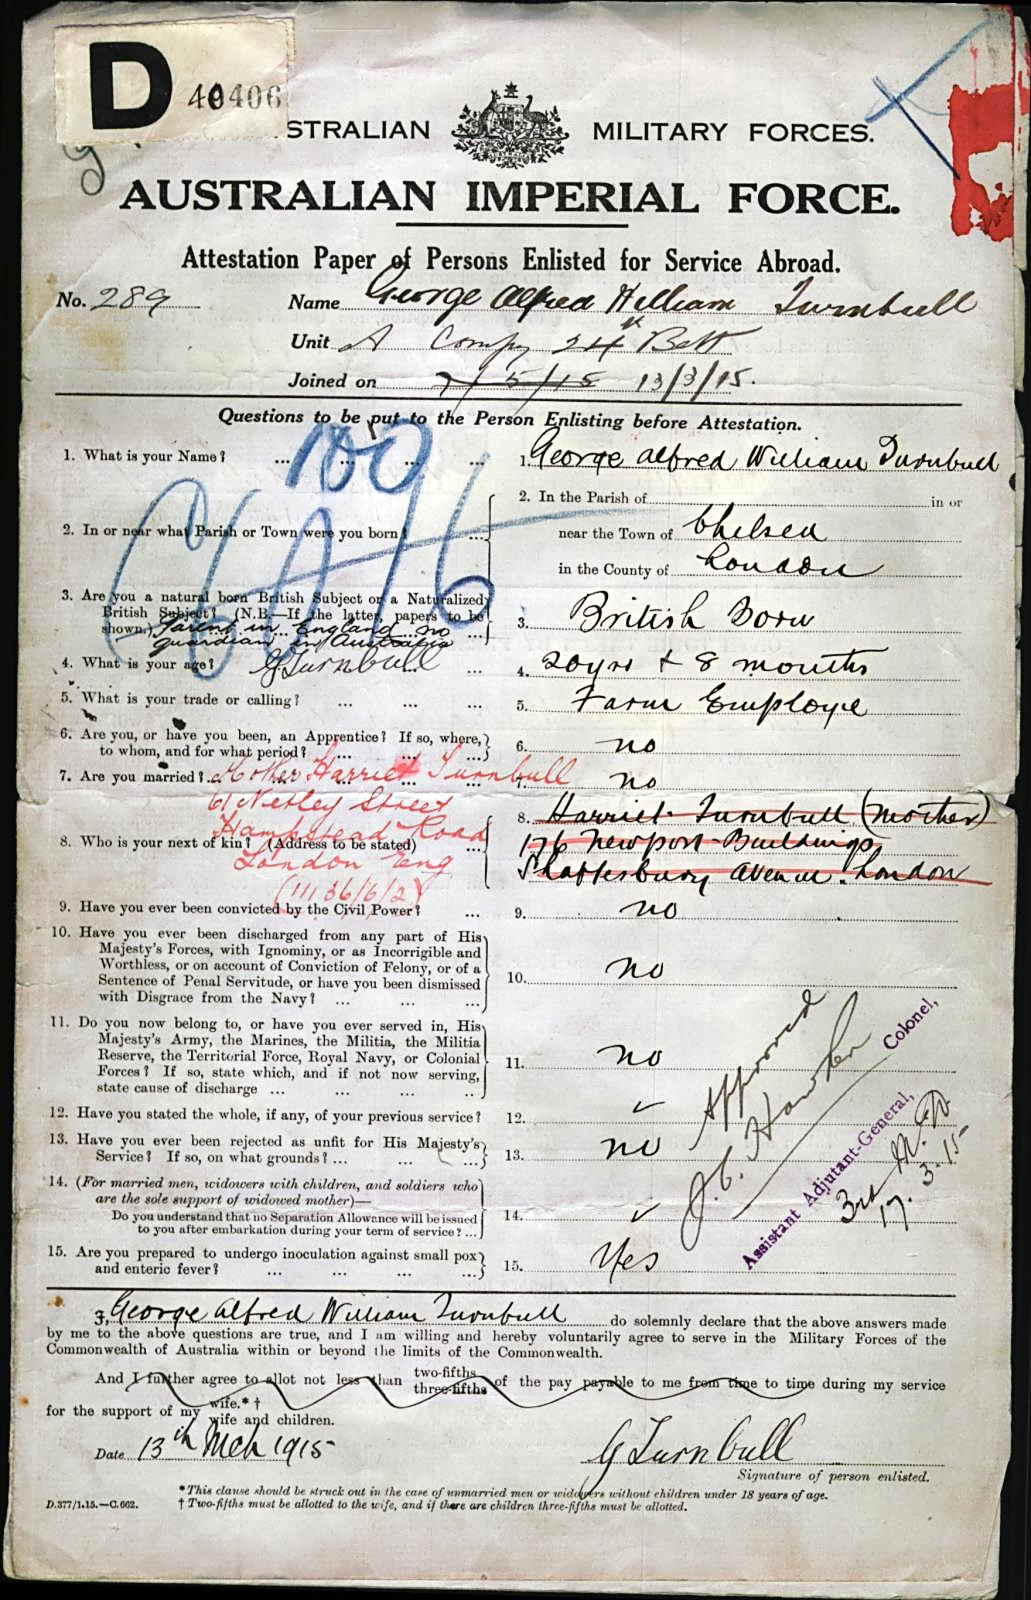 D 40406
STRALIAN MILITARY FORCES.
AUSTRALIAN IMPERIAL FORCE.
Attestation Paper of Persons Enlisted for Service Abroad.
No. 289 Name George Alfred William Turnbull
Unit A Compy 24th Batt
Joined on 7/5/15 13/3/15.
Questions to be put to the Person Enlisting before Attestation.
1. What is your Name? ... ... ... ... 1. George Alfred William Turnbull
2. In or near what Parish or Town were you born? ... 2. In the Parish of in or
near the Town of Chelsea
in the County of London
3. Are you a natural born British Subject or a Naturalized
British Subject? (N.B.—If the latter, papers to be
shown.) ... 3. British Born
Parent in England no
guardian in Australia
G Turnbull
4. What is your age? ... 4. 20 yrs + 8 months
5. What is your trade or calling? ... ... ... 5. Farm Employe
6. Are you, or have you been, an Apprentice? If so, where,
to whom, and for what period? ... ... ... 6. no
7. Are you married? ... 7. no
Mother Harriet Turnbull
61 Netley Street
Hampstead Road
London Eng
(111 36/6/2)
8. Who is your next of kin? (Address to be stated) ... 8. Harriet Turnbull (Mother)
176 Newport Buildings
Shaftesbury Avenue. London
9. Have you ever been convicted by the Civil Power? ... 9. no
10. Have you ever been discharged from any part of His
Majesty's Forces, with Ignominy, or as Incorrigible and
Worthless, or on account of Conviction of Felony, or of a
Sentence of Penal Servitude, or have you been dismissed
with Disgrace from the Navy? ... ... ... 10. no
11. Do you now belong to, or have you ever served in, His
Majesty's Army, the Marines, the Militia, the Militia
Reserve, the Territorial Force, Royal Navy, or Colonial
Forces? If so, state which, and if not now serving,
state cause of discharge ... ... ... .. 11. no
12. Have you stated the whole, if any, of your previous service? 12.
13. Have you ever been rejected as unfit for His Majesty's
Service? If so, on what grounds? ... ... ... 13. no
14. (For married men, widowers with children, and soldiers who
are the sole support of widowed mother)—
Do you understand that no Separation Allowance will be issued
to you after embarkation during your term of service? ... 14.
15. Are you prepared to undergo inoculation against small pox
and enteric fever? ... ... ... ... 15. Yes
Approved
Colonel,
Assistant Adjutant-General,
3rd M.D.
17.3.15
I, George Alfred William Turnbull do solemnly declare that the above answers made
by me to the above questions are true, and I am willing and hereby voluntarily agree to serve in the Military Forces of the
Commonwealth of Australia within or beyond the limits of the Commonwealth.
And I further agree to allot not less than two-fifths three-fifths of the pay payable to me from time to time during my service
for the support of my wife.*† wife and children.
Date 13th Mch 1915 G Turnbull
Signature of person enlisted.
* This clause should be struck out in the case of unmarried men or widowers without children under 18 years of age.
D.377/1.15.—C.662. † Two-fifths must be allotted to the wife, and if there are children three-fifths must be allotted.